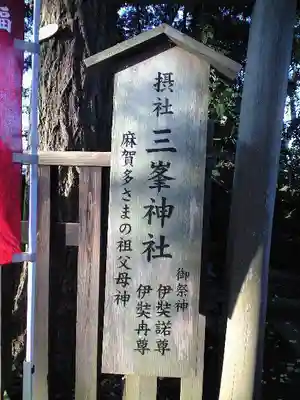 福
摂社 三峯神社
御祭神
伊奘諾尊
伊奘冉尊
麻賀多さまの祖父母神